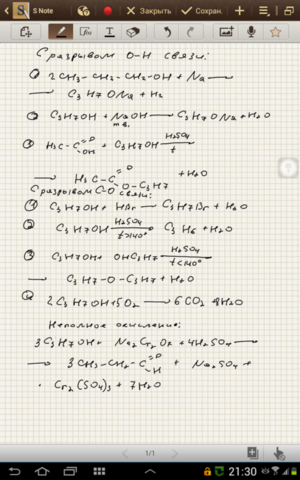 S Note
Закрыть
Сохран.
С разрывом O-H связи:
① 2CH₃-CH₂-CH₂-OH + Na →
→ C₃H₇ONa + H₂
② C₃H₇OH + NaOH → C₃H₇ONa + H₂O
тв.
③ H₃C-C =O -OH + C₃H₇OH H₂SO₄ / t
→ H₃C-C =O O-C₃H₇ + H₂O
С разрывом C-O связи:
① C₃H₇OH + HBr → C₃H₇Br + H₂O
② C₃H₇OH H₂SO₄ / t>140° C₃H₆ + H₂O
③ C₃H₇OH + OHC₃H₇ H₂SO₄ / t<140°
→ C₃H₇-O-C₃H₇ + H₂O
④ 2C₃H₇OH + 5O₂ → 6CO₂ 8H₂O
Неполное окисление:
3C₃H₇OH + Na₂Cr₂O₇ + 4H₂SO₄ →
→ 3CH₃-CH₂-C =O -H + Na₂SO₄ +
· Cr₂(SO₄)₃ + 7H₂O
1/1
21:30